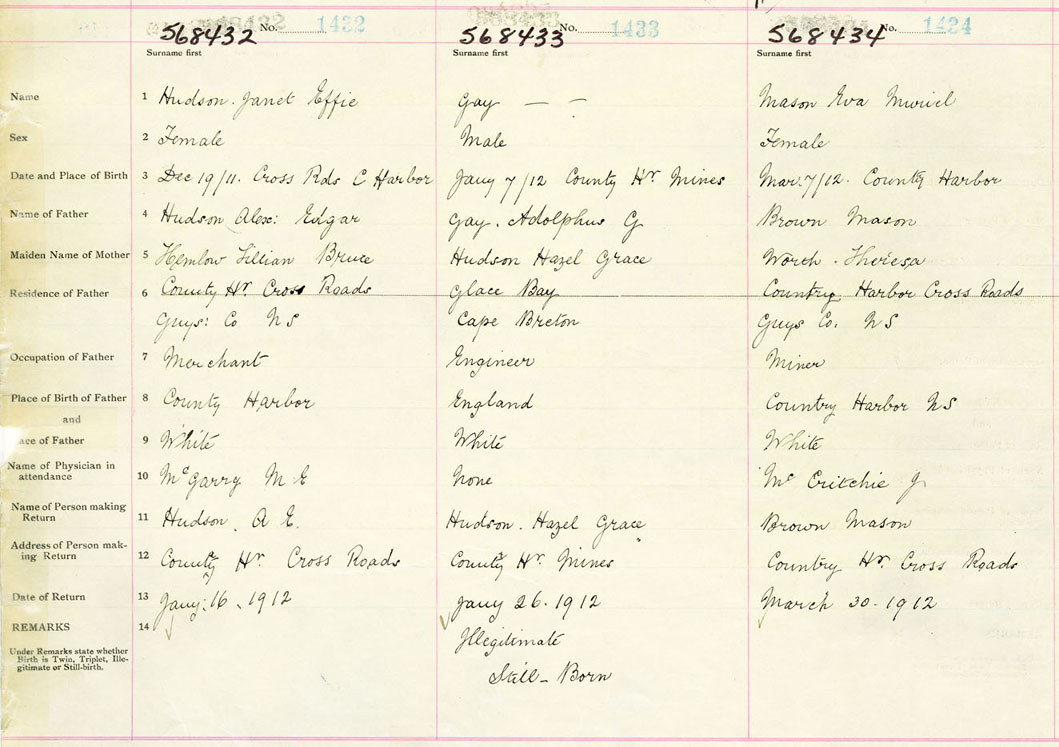 568432 No. 1432 568433 No. 1433 568434 No. 1434
Surname first Surname first Surname first
Name 1 Hudson. Janet Effie Gay — - Mason Eva Muriel
Sex 2 Female Male Female
Date and Place of Birth 3 Dec 19/11. Cross Rds C Harbor Jany 7/12 County Hr Mines Mar. 7/12. County Harbor
Name of Father 4 Hudson Alex: Edgar Gay. Adolphus G Brown Mason
Maiden Name of Mother 5 Hemlow Lillian Bruce Hudson Hazel Grace Worth. Theresa
Residence of Father 6 County Hr. Cross Roads Glace Bay Country Harbor Cross Roads
Guys: Co N S Cape Breton Guys Co. N S
Occupation of Father 7 Merchant Engineer Miner
Place of Birth of Father 8 County Harbor England Country Harbor N S
and
ace of Father 9 White White White
Name of Physician in
attendance 10 McGarry M E None
Name of Person making
Return 11 Hudson. A E. Hudson. Hazel Grace Brown Mason
Address of Person mak-
ing Return 12 County Hr. Cross Roads County Hr. Mines Country Hr. Cross Roads
Date of Return 13 Jany: 16. 1912 Jany 26. 1912 March 30. 1912
REMARKS 14
Under Remarks state whether
Birth is Twin, Triplet, Ille-
gitimate or Still-birth.
Illegitimate
Still-Born